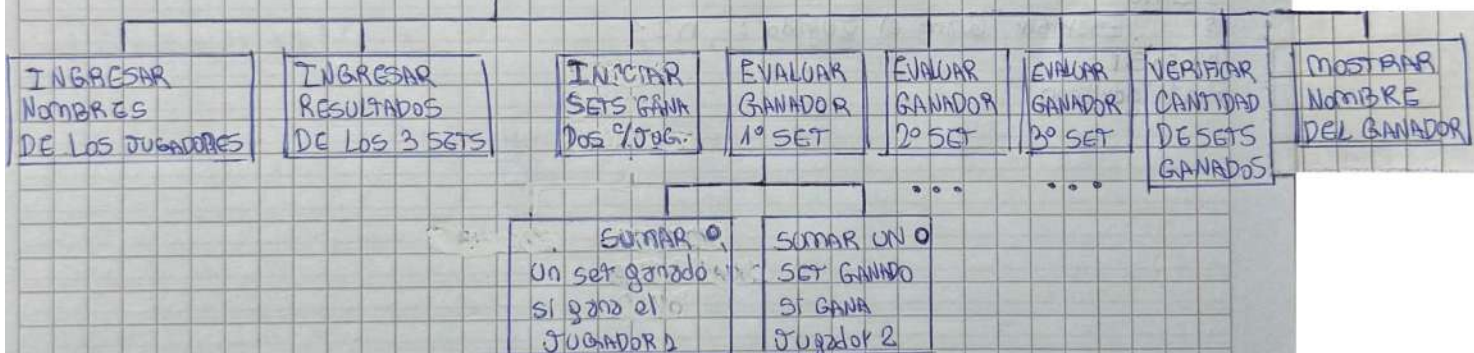 INGRESAR
NOMBRES
DE LOS JUGADORES
INGRESAR
RESULTADOS
DE LOS 3 SETS
INICIAR
SETS GANA
DOS %JUG.
EVALUAR
GANADOR
1º SET
EVALUAR
GANADOR
2º SET
EVALUAR
GANADOR
3º SET
VERIFICAR
CANTIDAD
DE SETS
GANADOS
MOSTRAR
NOMBRE
DEL GANADOR
...
...
SUMAR
un set ganado
si gana el
JUGADOR 1
SUMAR UN
SET GANADO
SI GANA
Jugador 2